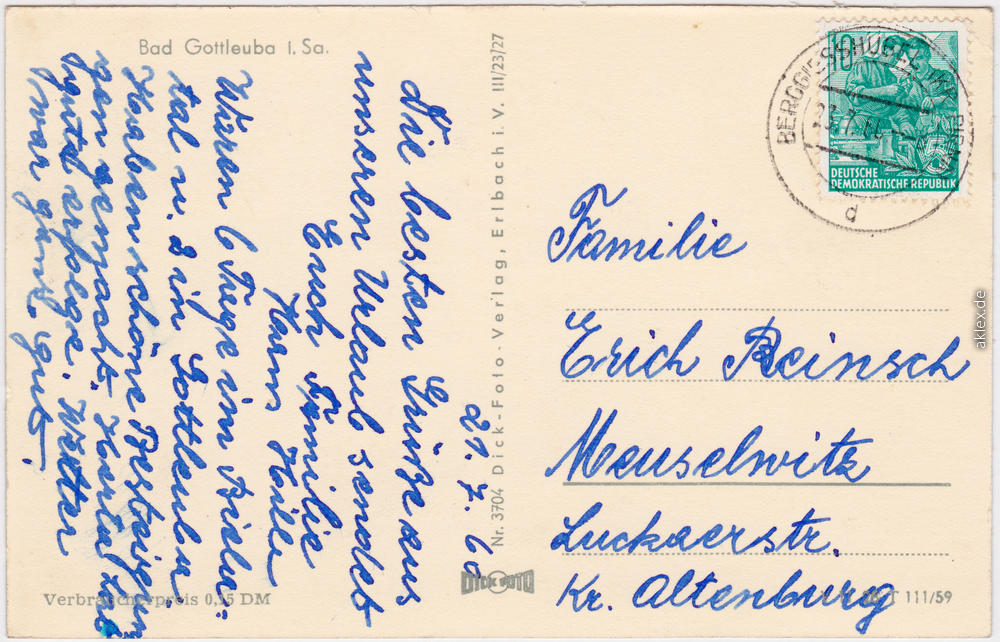 Bad Gottleuba i. Sa.
21. 7. 60
Die besten Grüße aus
unseren Urlaub sendet
Euch Familie
Hans Heller
Waren 6 Tage im Biela-
tal u. 8 in Gottleuba.
Haben schöne Besteigun
gen gemacht. Karte hat
guten erfolge. Wetter
war ganz gut.
Nr. 3704 Dick-Foto-Verlag, Erlbach i. V. III/23/27
DICK FOTO
Verbraucherpreis 0,15 DM
BERGGIESSHÜBEL über PIRNA
d
10
5
DEUTSCHE
DEMOKRATISCHE REPUBLIK
Familie
Erich Reinsch
Meuselwitz
Luckaerstr.
Kr. Altenburg
111/59
aklex.de